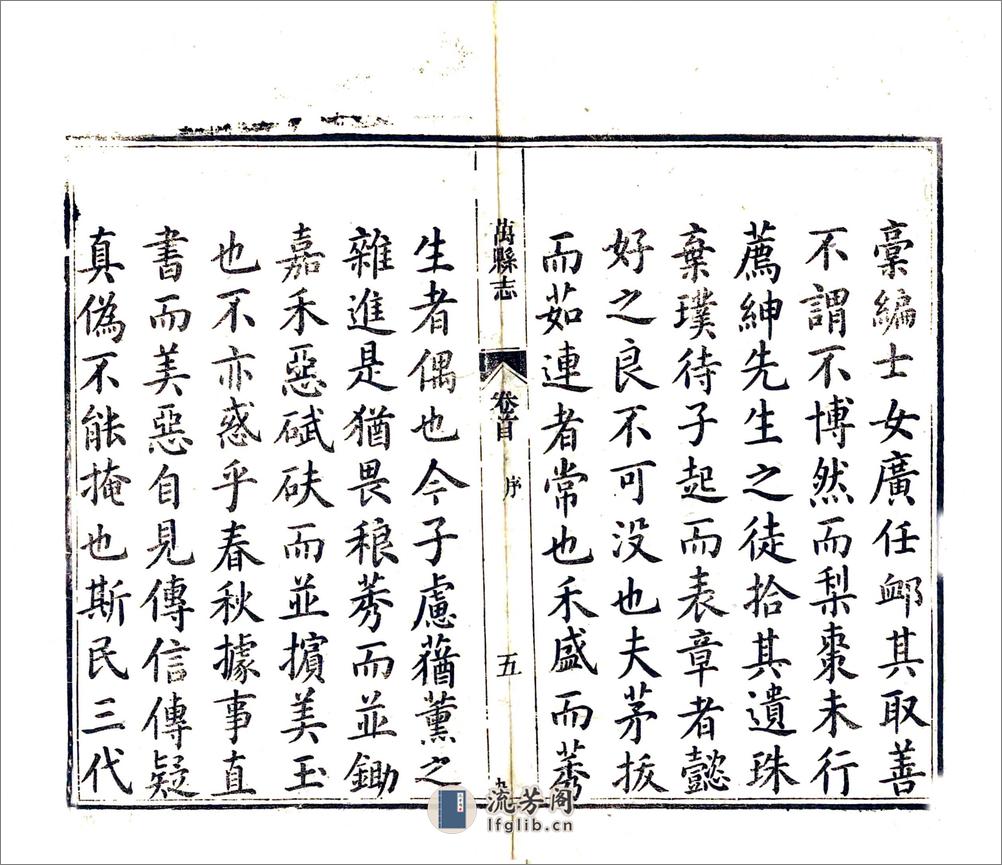 稾編士女廣任䘏其取善
不謂不博然而梨棗未行
薦紳先生之徒拾其遺珠
棄璞待子起而表章者懿
好之良不可没也夫茅拔
而茹連者常也禾盛而莠
萬縣志
卷首
序
五
生者偶也今子慮蕕薰之
雜進是猶畏稂莠而並鋤
嘉禾惡碔砆而並擯美玉
也不亦惑乎春秋據事直
書而美惡自見傳信傳疑
真偽不能掩也斯民三代
流芳阁
lfglib.cn